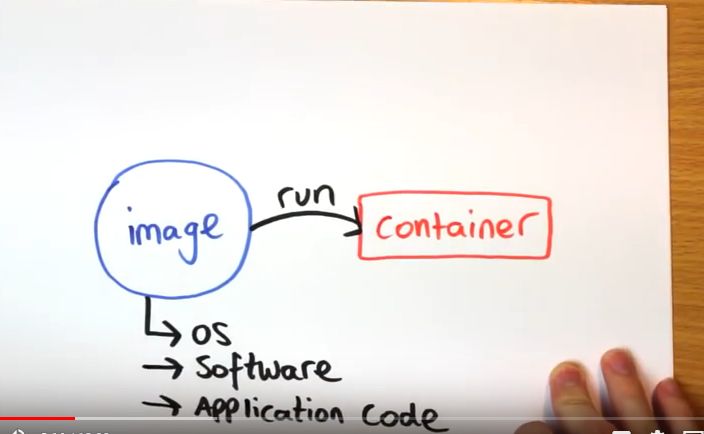 run
image
container
OS
Software
Application Code